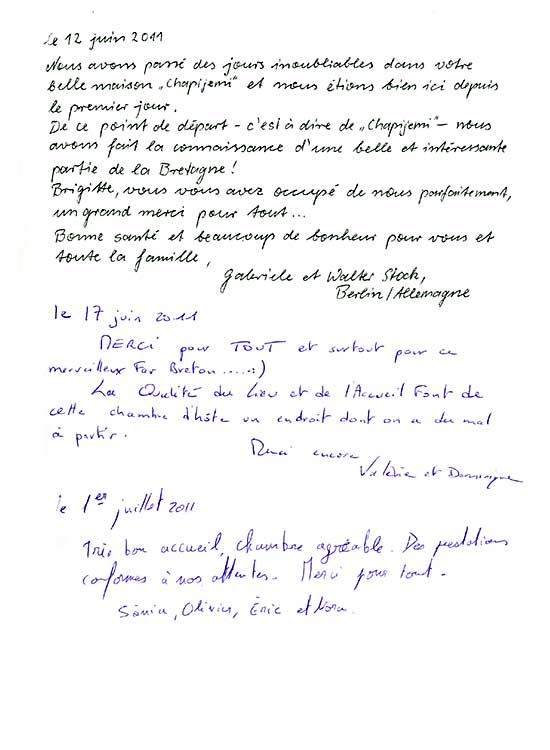 le 12 juin 2011
Nous avons passé des jours inoubliables dans votre
belle maison „Chapijemi" et nous étions bien ici depuis
le premier jour.
De ce point de départ - c'est à dire de „Chapijemi" - nous
avons fait la connaissance d'une belle et intéressante
partie de la Bretagne !
Brigitte, vous vous avez occupé de nous parfaitement,
un grand merci pour tout ...
Bonne santé et beaucoup de bonheur pour vous et
toute la famille,
Gabriele et Walter Stock,
Berlin/Allemagne
le 17 juin 2011
MERCI pour TOUT et surtout pour ce
merveilleux Far Breton .....:)
La Qualité du Lieu et de l'Accueil Font de
cette chambre d'hôte un endroit dont on a du mal
à partir.
Merci encore
Valérie et Dominique
le 1er juillet 2011
Très bon accueil, chambre agréable. Des prestations
conformes à nos attentes. Merci pour tout.
Sonia, Olivier, Éric et Nora.